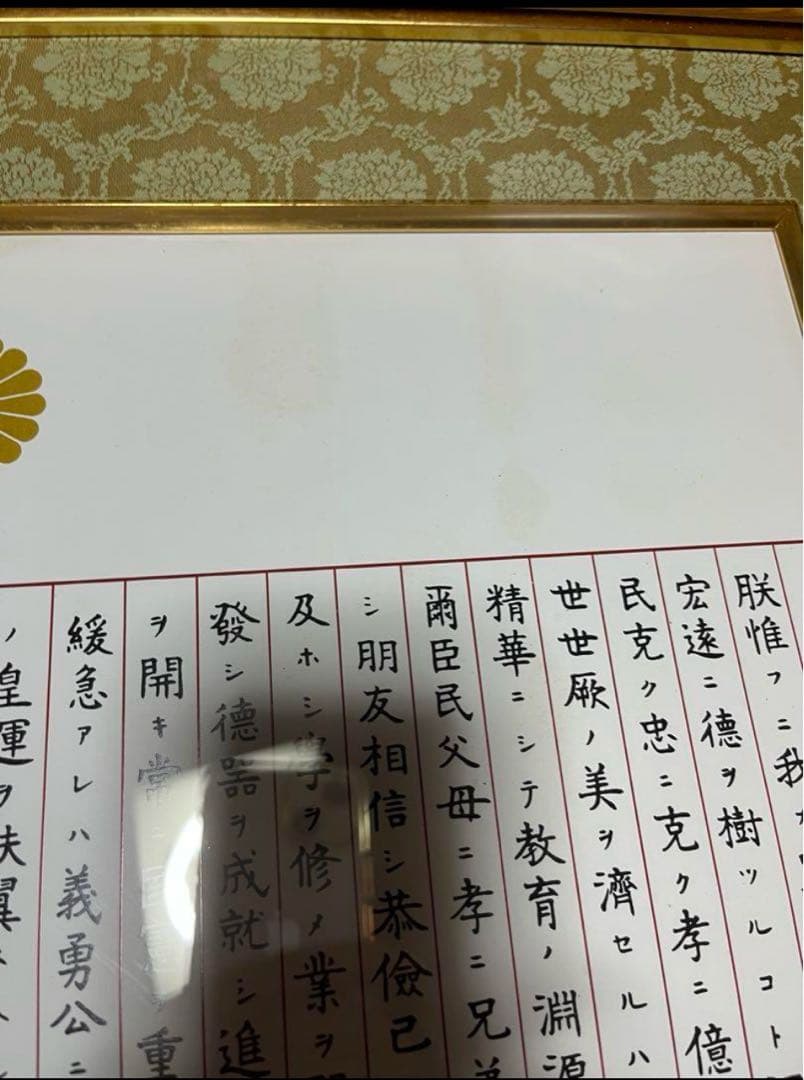 朕惟フニ我カ
宏遠ニ德ヲ樹ツルコト
民克ク忠ニ克ク孝ニ億
世世厥ノ美ヲ濟セルハ
精華ニシテ教育ノ淵源
爾臣民父母ニ孝ニ兄弟
シ朋友相信シ恭儉己
及ホシ學ヲ修メ業ヲ
發シ德器ヲ成就シ進
ヲ開キ常ニ國憲ヲ重
緩急アレハ義勇公ニ
ノ皇運ヲ扶翼